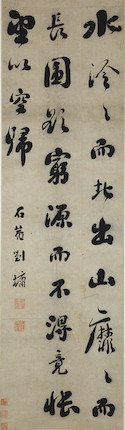 水泠〻而北出山靡〻而
長圍欲窮源而不得竟悵
望以空歸
石菴劉墉